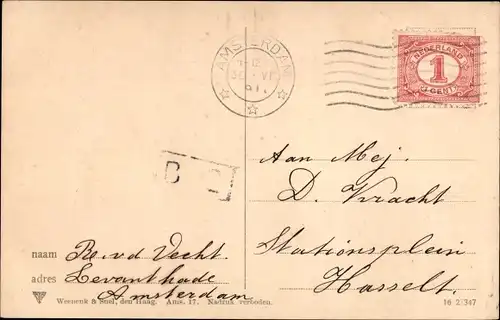 AMSTERDAM
NEDERLAND
1
CENT
Aan Mej.
D. Kracht
Stationsplein
Hasselt.
naam R. v d Vecht.
adres Levantkade
Amsterdam
Weenenk & Snel, den Haag. Ams. 17. Nadruk verboden.
16 2/347